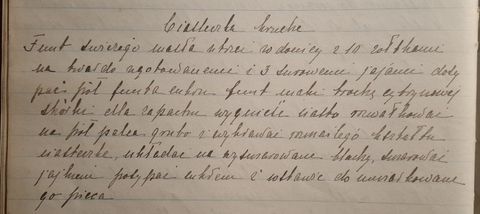 Ciasteczka kruche
Funt świeżego masła utrzeć w donicy z 10 żółtkami
na twardo ugotowanemi i 3 surowemi jajami dosy
pać pół funta cukru funt mąki trochę cytrynowej
skórki dla zapachu wygnieść ciasto rozwałkować
na pół palca grubo i wykrawać rozmaitego kształtu
ciasteczka, układać na wysmarowane blachy, smarować
jajkiem posypać cukrem i wstawić do umiarkowane
go pieca